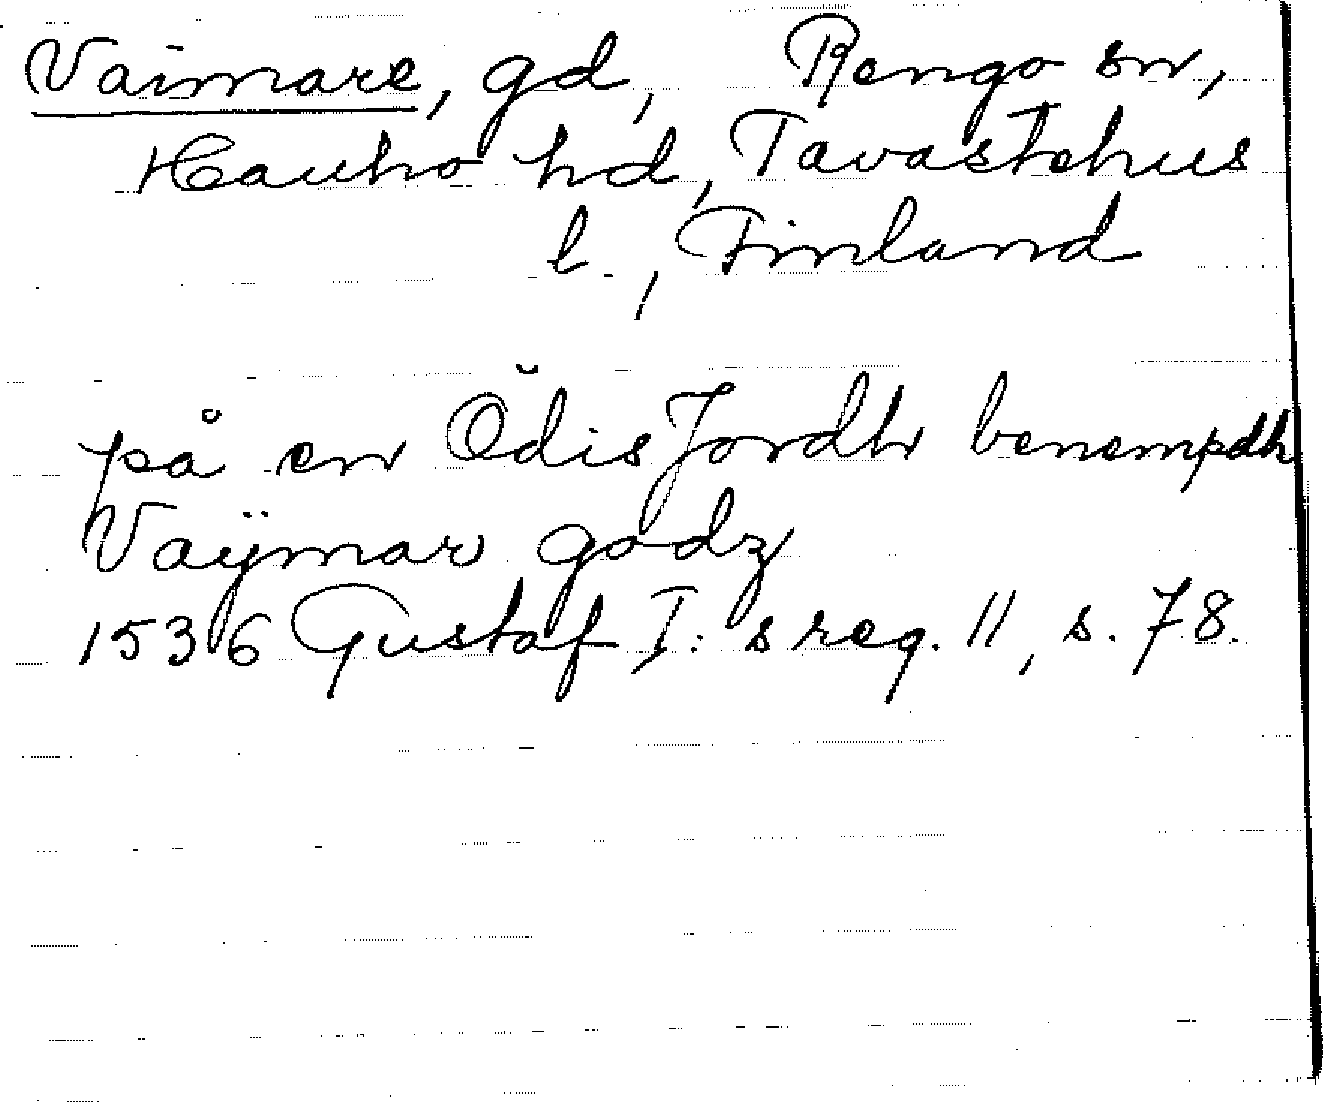 Vaimare, gd, Rengo sn,
Hauho hd, Tavastehus
l., Finland
på en Ödis Jordh benempdh
Vaÿmar godz
1536 Gustaf I:s reg. 11, s. 78.